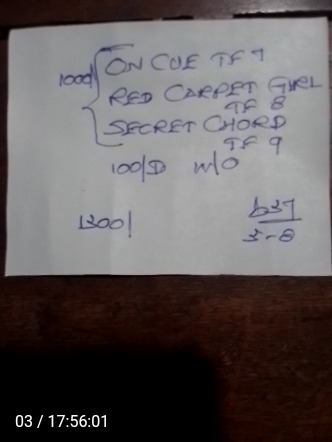 1000/ ON CUE TF 7
RED CARPET GIRL
TF 8
SECRET CHORD
TF 9
100/D W/O
1300/
637
3-8
03 / 17:56:01